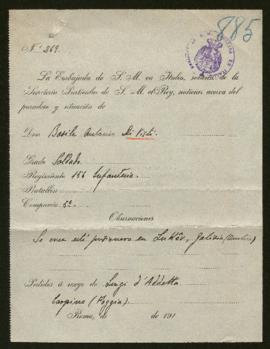 885
Nº 269.
La Embajada de S. M. en Italia, solicita de la
Secretaría Particular de S. M. el Rey, noticias acerca del
paradero y situación de
Don Basile Antonio
Grado Soldado
Regimiento 156 Infantería
Batallón
Compañía 5ª
Observaciones
Se cree esté prisionero en
Pedidas á ruego de Luigi d'Addetta
Carpino (Foggia)
Roma, de de 191